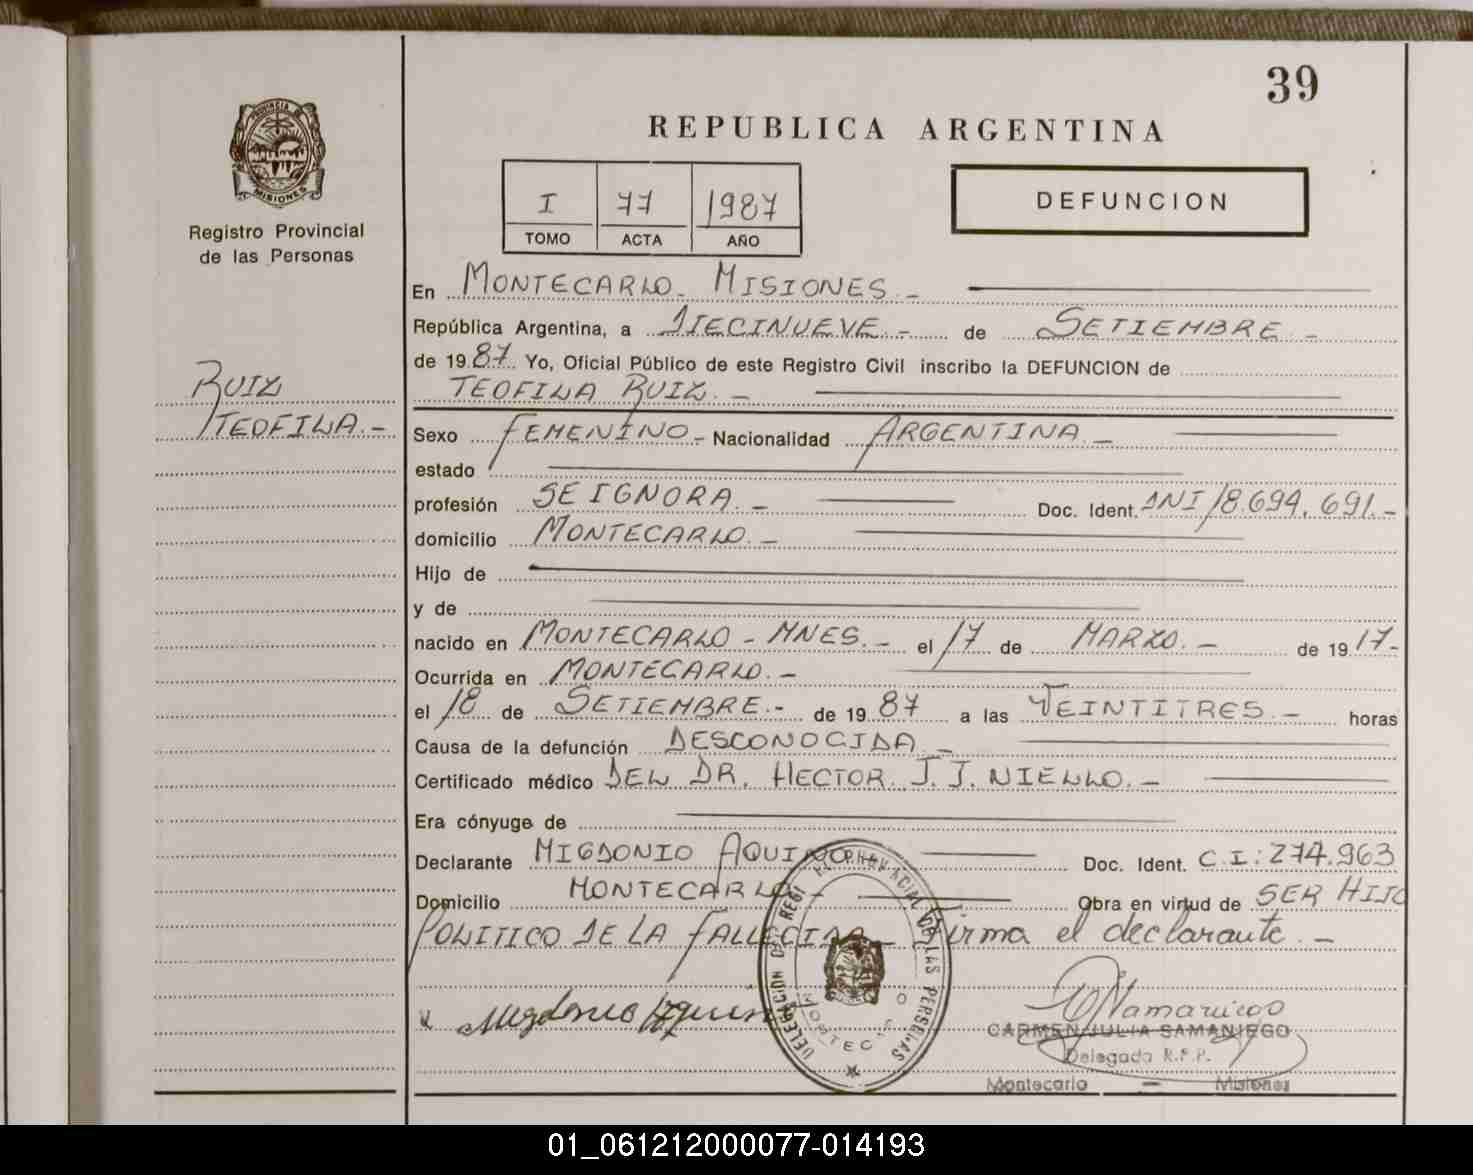 39
REPUBLICA ARGENTINA
PROVINCIA DE
MISIONES
Registro Provincial
de las Personas
I 77 1987
TOMO ACTA AÑO
DEFUNCION
En MONTECARLO - MISIONES.-
República Argentina, a DIECINUEVE.- de SETIEMBRE.-
de 1987. Yo, Oficial Público de este Registro Civil inscribo la DEFUNCION de
RUIZ
TEOFILA.-
TEOFILA RUIZ.-
Sexo FEMENINO.- Nacionalidad ARGENTINA.-
estado
profesión SE IGNORA.- Doc. Ident. DNI/8.694.691.-
domicilio MONTECARLO.-
Hijo de
y de
nacido en MONTECARLO - MNES.- el 17 de MARZO.- de 1917.-
Ocurrida en MONTECARLO.-
el 18 de SETIEMBRE.- de 1987 a las VEINTITRES.- horas
Causa de la defunción DESCONOCIDA.-
Certificado médico DEL DR. HECTOR J.J. NIELLO.-
Era cónyuge de
Declarante MIGDONIO AQUINO.- Doc. Ident. C.I: 274.963
Domicilio MONTECARLO.- Obra en virtud de SER HIJO
POLITICO DE LA FALLECIDA.- Firma el declarante.-
DELEGACION DEL REGISTRO PROVINCIAL DE LAS PERSONAS
MONTECARLO
CARMEN JULIA SAMANIEGO
Delegada R.P.P.
Montecarlo — Misiones
01_061212000077-014193